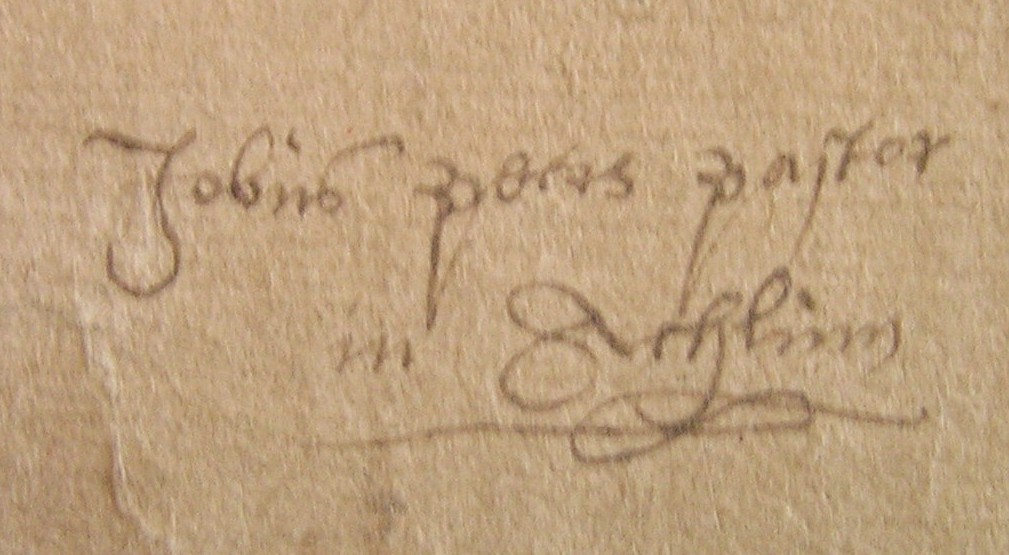 Jobius peters pastor
in Achlum